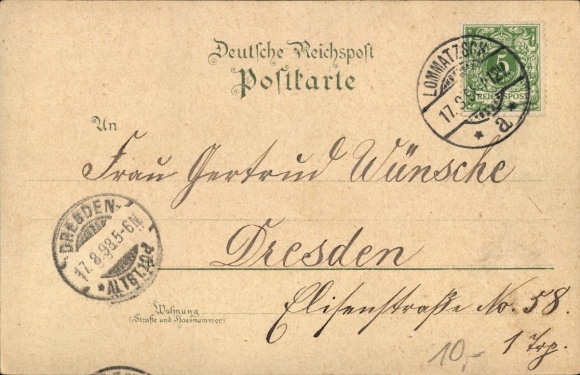 Deutsche Reichspost
Postkarte
5
REICHSPOST
LOMMATZSCH
17.8.
a
An
Frau Gertrud Wünsche
Dresden
DRESDEN-
17.8.98.5-6N.
ALTST.10
Wohnung
(Straße und Hausnummer)
Elisenstraße No. 58.
1 Trp.
10,-